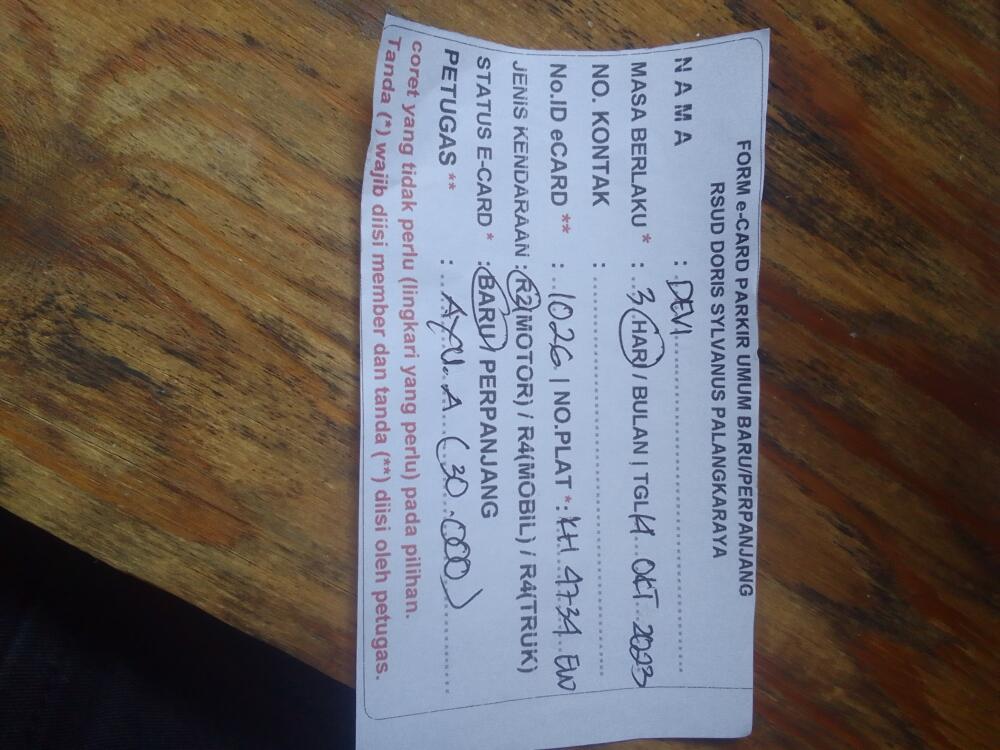 FORM e-CARD PARKIR UMUM BARU/PERPANJANG
RSUD DORIS SYLVANUS PALANGKARAYA
N A M A : DEVI
MASA BERLAKU * : 3 HARI / BULAN | TGL 14 OKT 2023
NO. KONTAK :
No.ID eCARD ** : 1026 | NO.PLAT * : KH 4734 EW
JENIS KENDARAAN : R2(MOTOR) / R4(MOBIL) / R4(TRUK)
STATUS E-CARD * : BARU / PERPANJANG
PETUGAS ** : AYU. A (30.000)
coret yang tidak perlu (lingkari yang perlu) pada pilihan.
Tanda (*) wajib diisi member dan tanda (**) diisi oleh petugas.